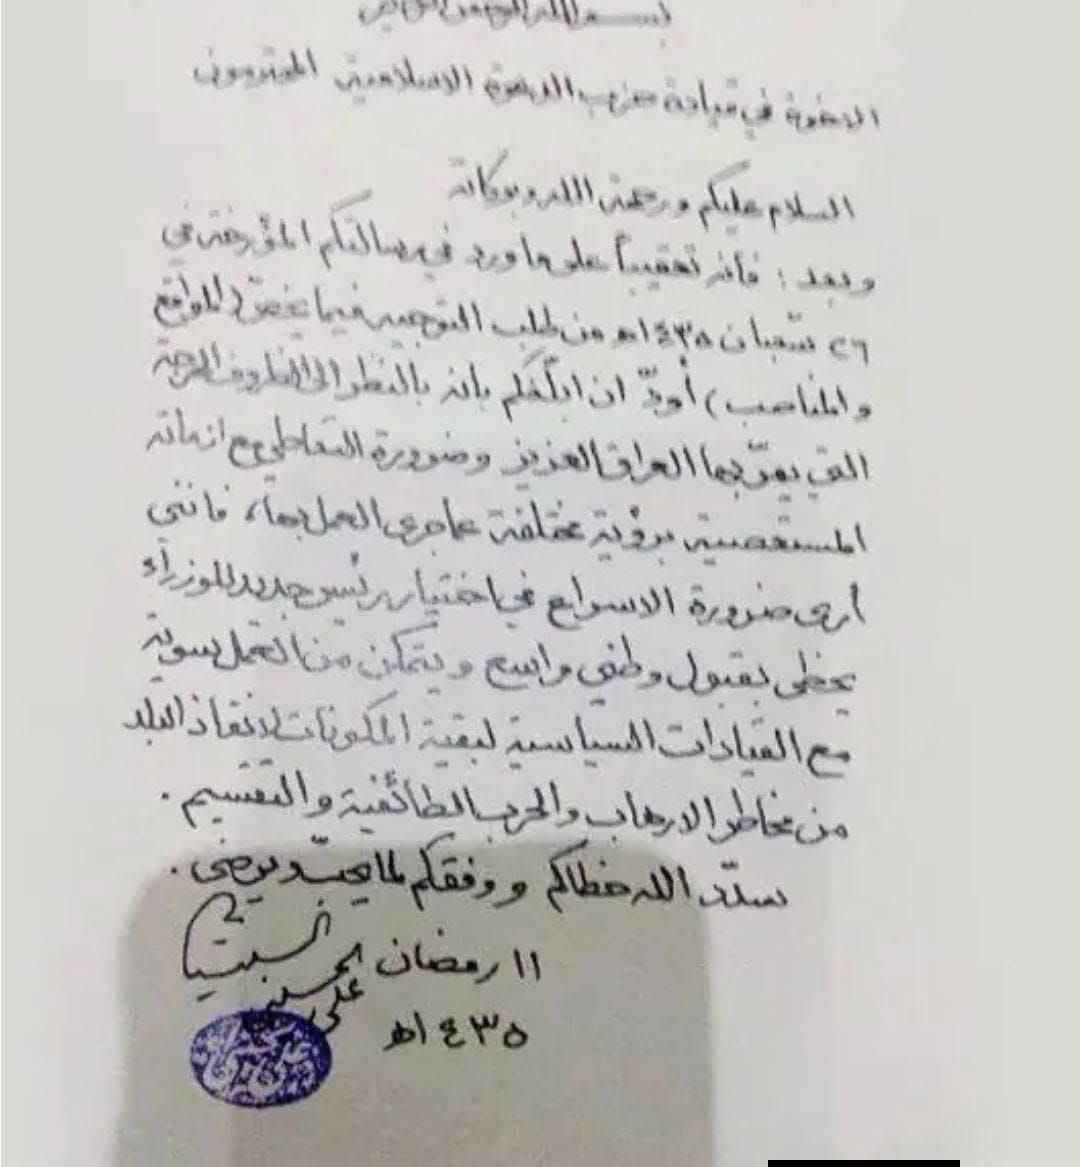 بسم الله الرحمن الرحيم
الاخوة في قيادة حزب الدعوة الاسلامية المحترمون
السلام عليكم ورحمة الله وبركاته
وبعد : فانه تعقيباً على ما ورد في رسالتكم المؤرخة في
٢٦ شعبان ١٤٣٥هـ من طلب التوجيه فيما يخص (المواقع
والمناصب) أودّ ان ابلّغكم بانه بالنظر الى الظروف الحرجة
التي يمرّ بها العراق العزيز وضرورة التعاطي مع ازماته
المستعصية برؤية مختلفة عما جرى العمل بها، فانني
أرى ضرورة الاسراع في اختيار رئيس جديد للوزراء
يحظى بقبول وطني واسع ويتمكن من العمل سوية
مع القيادات السياسية لبقية المكونات لانقاذ البلد
من مخاطر الارهاب والحرب الطائفية والتقسيم .
سدّد الله خطاكم ووفقكم لما يحبّ ويرضى .
١١ رمضان
١٤٣٥هـ
علي الحسيني السيستاني